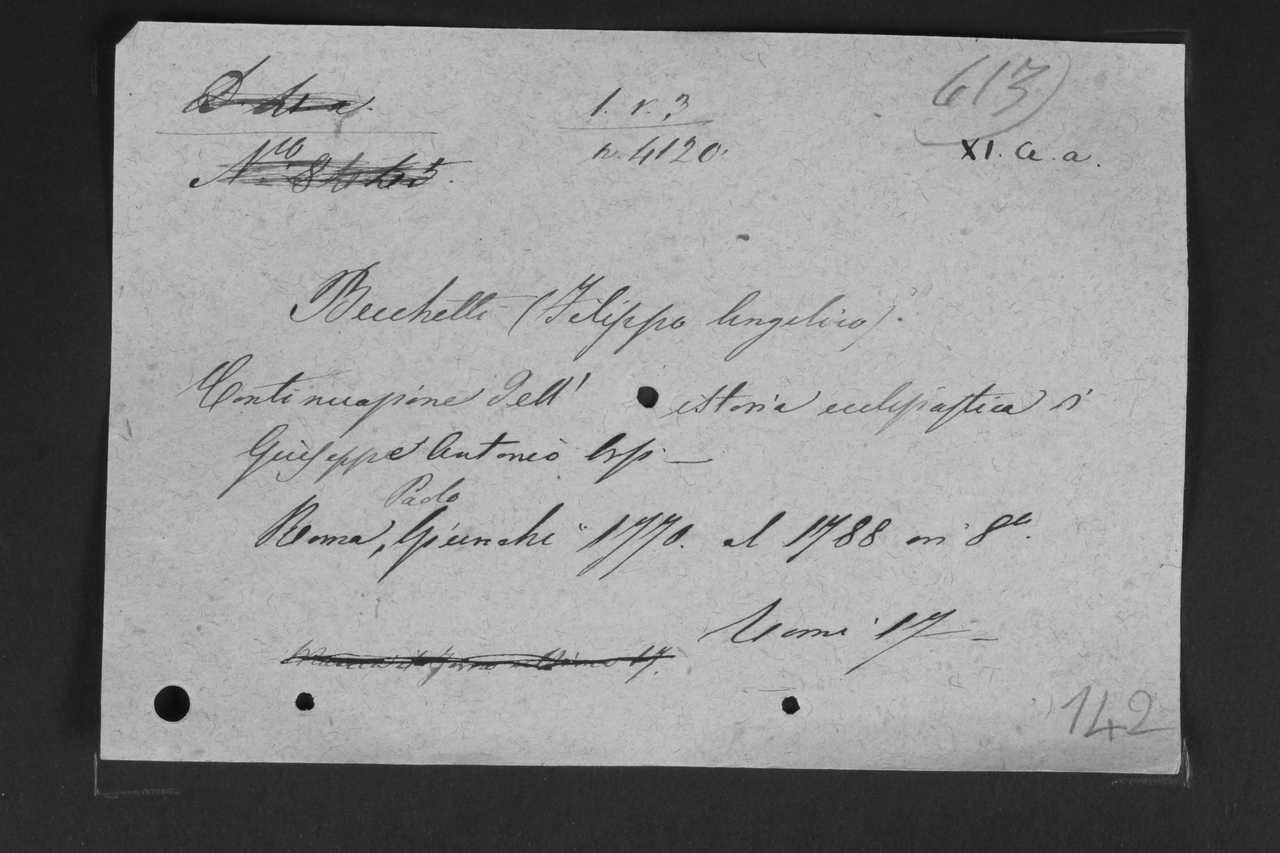 1. r. 3
n. 4120.
613
XI. a. a.
Becchetti (Filippo Angelico).
Continuazione dell' istoria ecclesiastica di
Giuseppe Antonio Orsi —
Paolo
Roma, Giunchi 1770. al 1788 in 8°.
Tomi 17 —
142